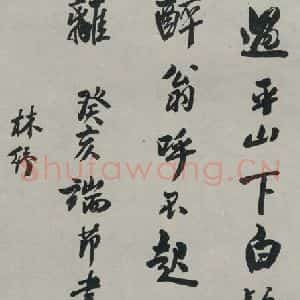 過平山下白
醉翁呼不起
離 癸亥端節書
林
Shufawang.CN